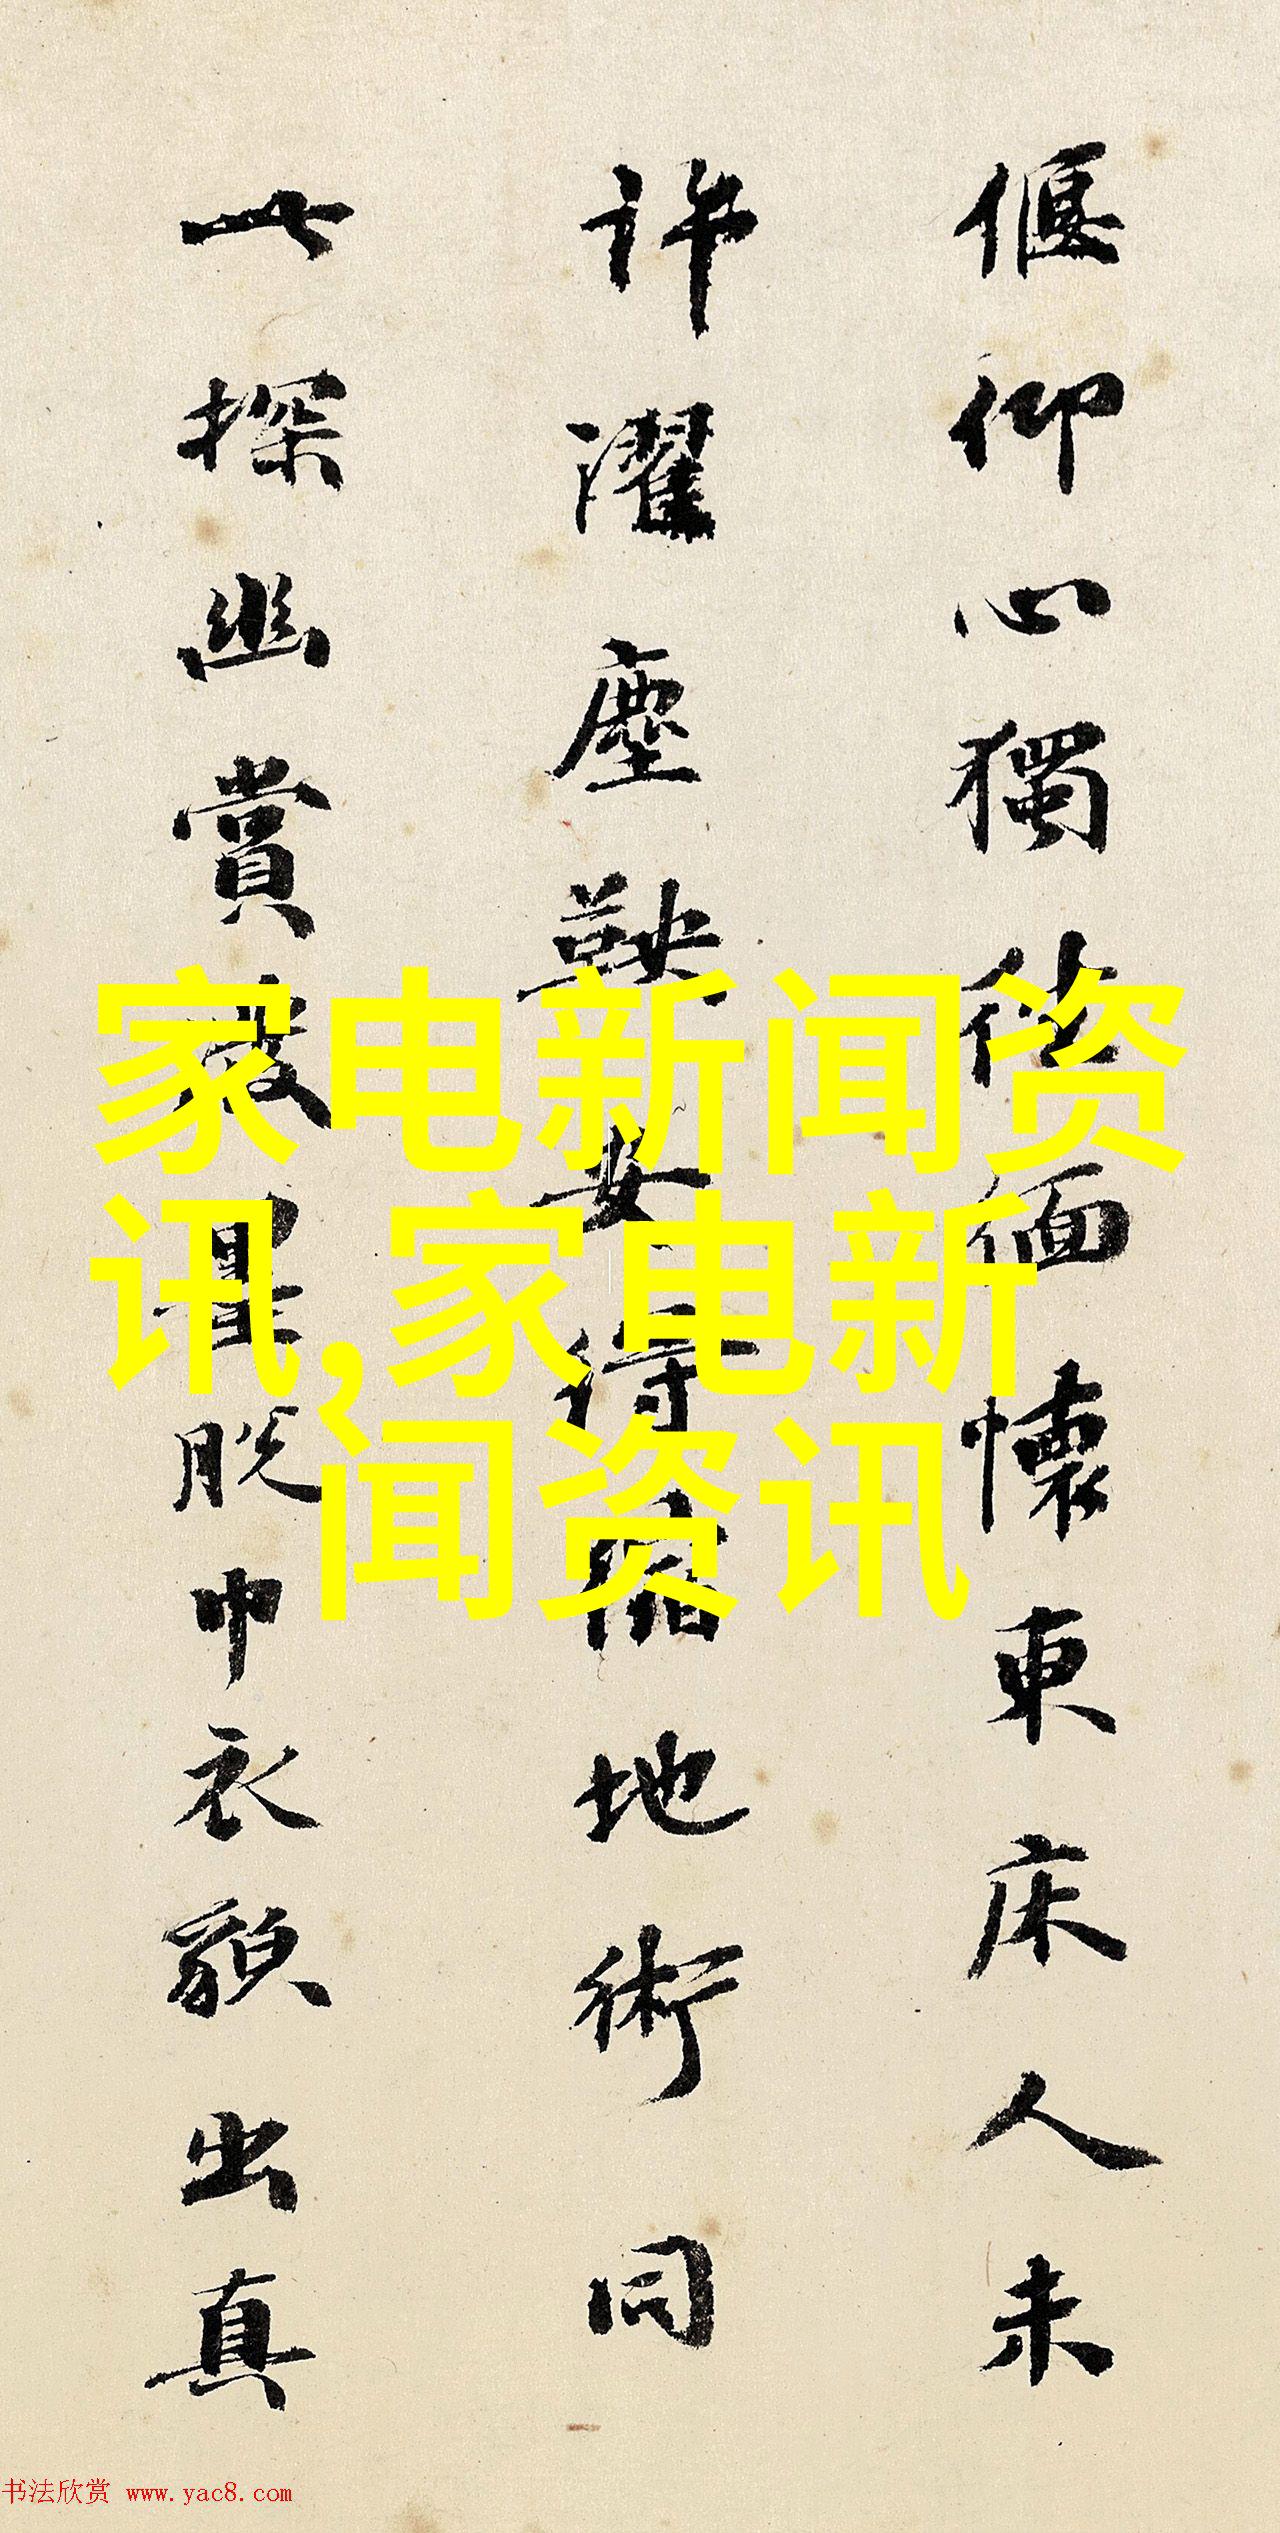 偃仰心獨缅懷東床人未
許濯塵鞅安得地術同
一探幽賞脫巾衣貌出真
家电新闻资
讯,家电新
闻资讯
书法欣赏 www.yac8.com